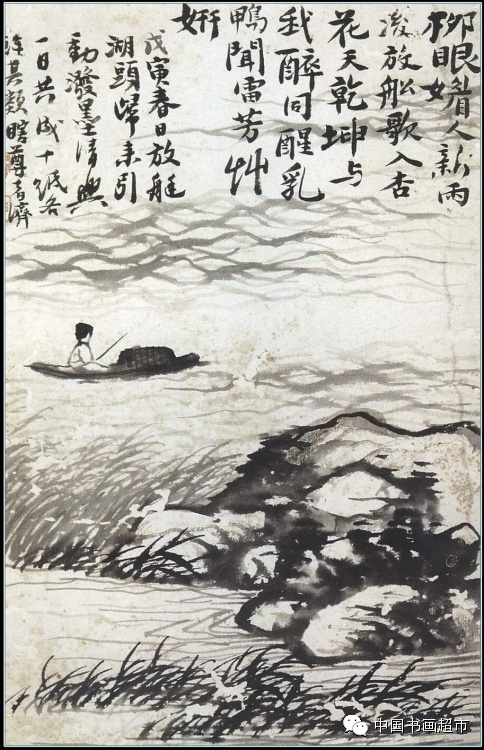 柳眼媚人新雨
後放舩歌入杏
花天乾坤与
我醉同醒乳
鴨聞雷芳艸
妍
戊寅春日放艇
湖頭歸来引
動潑墨清興
一日共成十紙各
其類瞎尊者濟
中国书画超市